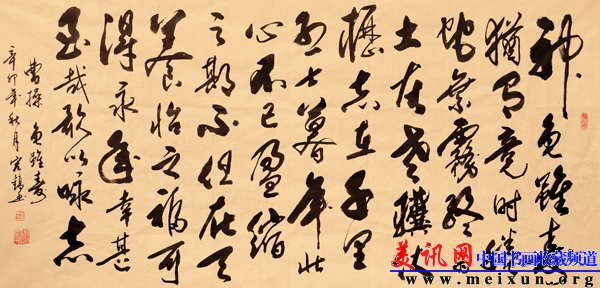 神龟雖壽
猶有竟時螣
蛇乘霧終为
土灰老驥伏
櫪志在千里
烈士暮年壮
心不已盈縮
之期不但在天
養怡之福可
得永年幸甚
至哉歌以咏志
曹操 龟雖壽
辛卯年秋月
美讯网 中国书画收藏频道
www.meixun.org